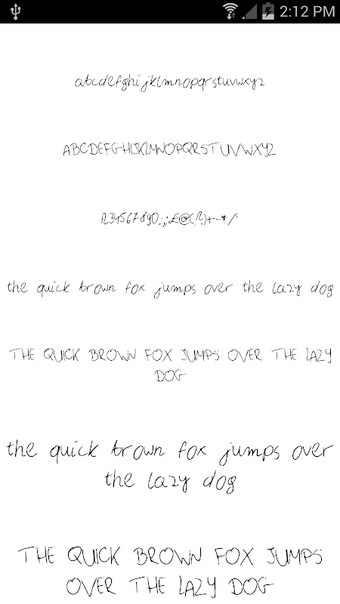 2:12 PM
abcdefghijklmnopqrstuvwxyz
ABCDEFGHIJKLMNOPQRSTUVWXYZ
the quick brown fox jumps over the lazy dog
THE QUICK BROWN FOX JUMPS OVER THE LAZY
DOG
the quick brown fox jumps over
the lazy dog
THE QUICK BROWN FOX JUMPS
OVER THE LAZY DOG